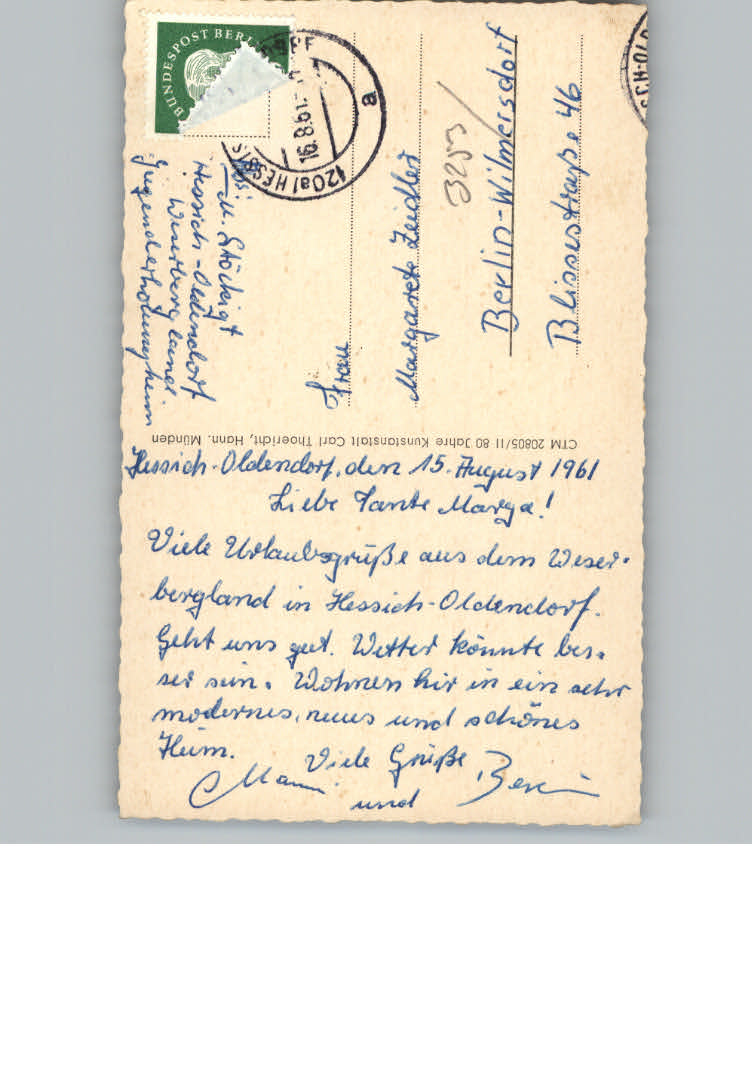 Hessich-Oldendorf, den 15. August 1961
Liebe Tante Marga!
Viele Urlaubsgrüße aus dem Weser-
bergland in Hessich-Oldendorf.
Geht uns gut. Wetter könnte bes-
ser sein. Wohnen hir in ein sehr
modernes, neues und schönes
Heim. Viele Grüße
und
CTM 20805/II 80 Jahre Kunstanstalt Carl Thoericht, Hann. Münden
BUNDESPOST BERL
16.8.61
(20a) HESSIS
a
SCH-OLD
Abs:
M. Stöckigt
Hessich-Oldendorf
Weserbergland
Jugenderholungsheim
Frau
Margarete Zeidler
Berlin-Wilmersdorf
Blissestraße 46